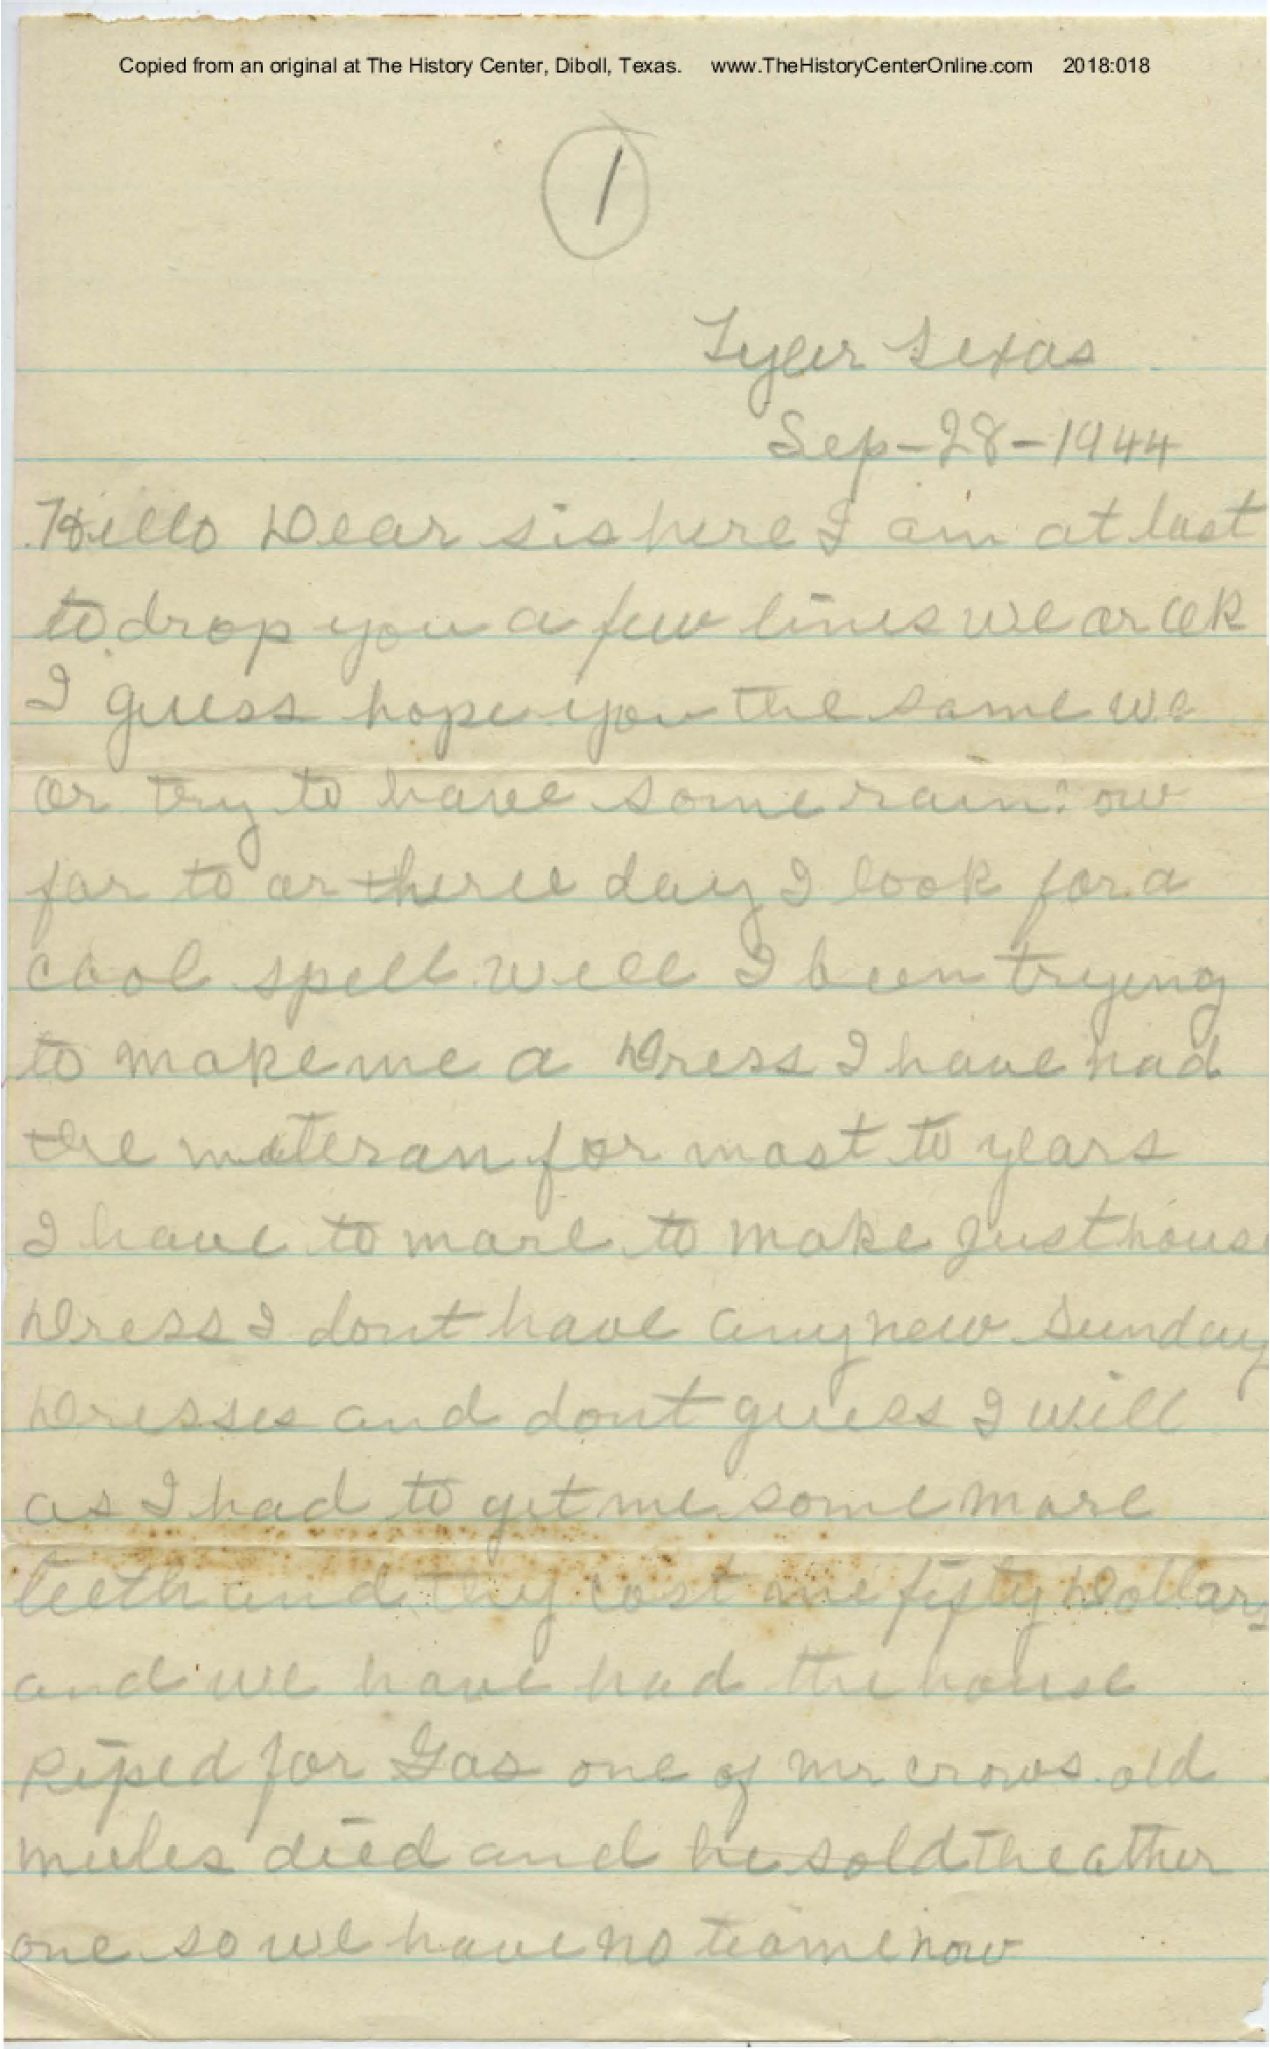 Copied from an original at The History Center, Diboll, Texas. www.TheHistoryCenterOnline.com 2018:018
1
Tyler Texas
Sep-28-1944
Hello Dear sis here I am at last
to drop you a few lines we ar ok
I guess hope you the same we
or try to have some rain now
for to or theree day I look for a
cool spell well I been trying
to make me a Dress I have had
the materan for most to years
I have to more to make just house
Dress I dont have any new Sunday
Dresses and dont guess I will
as I had to get me some more
teeth and they cost me fifty Dollars
and we have had the house
Piped for Gas one of mr crows old
mules died and he sold the other
one so we have no teame now